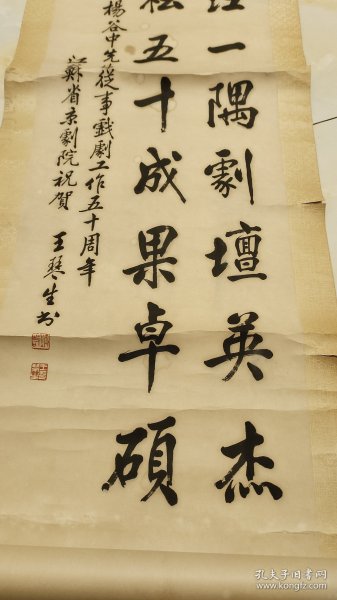 一隅劇壇英杰
五十成果卓碩
楊谷中先從事戲劇工作五十周年
江蘇省京劇院祝賀
王琴生书
孔夫子旧书网